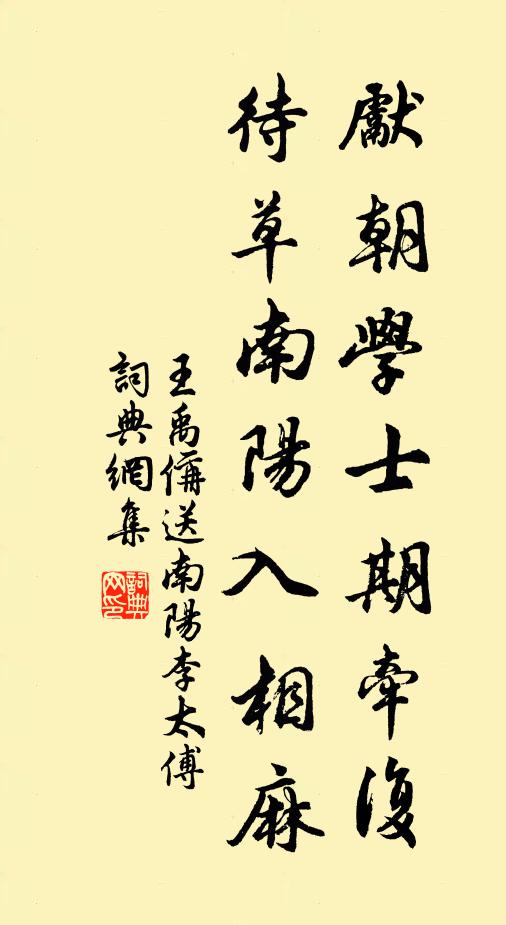 獻朝學士期牽復
待草南陽入相麻
王禹偁送南陽李太傅
詞典網集
詞典網印